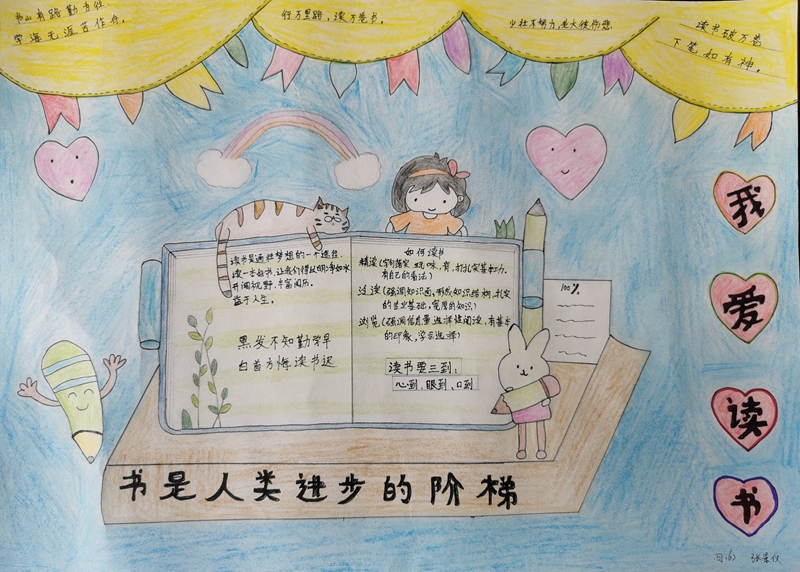 书山有路勤为径
学海无涯苦作舟。
行万里路，读万卷书。
少壮不努力，老大徒伤悲
读书破万卷
下笔如有神。
我
爱
读
书
读书是通往梦想的一个途径
读一本好书，让我们得以明净如水
开阔视野，丰富阅历。
益于人生。
黑发不知勤学早
白首方悔读书迟
如何读书
精读(
有自己的看法)
过读(强调知识面、形成知识结构，扎实
的专业基础，宽厚的知识)
浏览(强调信息量、选择读阅读，有基本
的印象，学会选择)
读书要三到：
心到、眼到、口到
100%
书是人类进步的阶梯